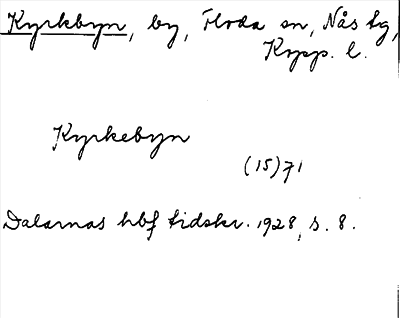 Kyrkbyn, by, Floda sn, Nås tg,
Kopp. l.
Kyrkebyn
(15)71
Dalarnas hbf tidskr. 1928, s. 8.